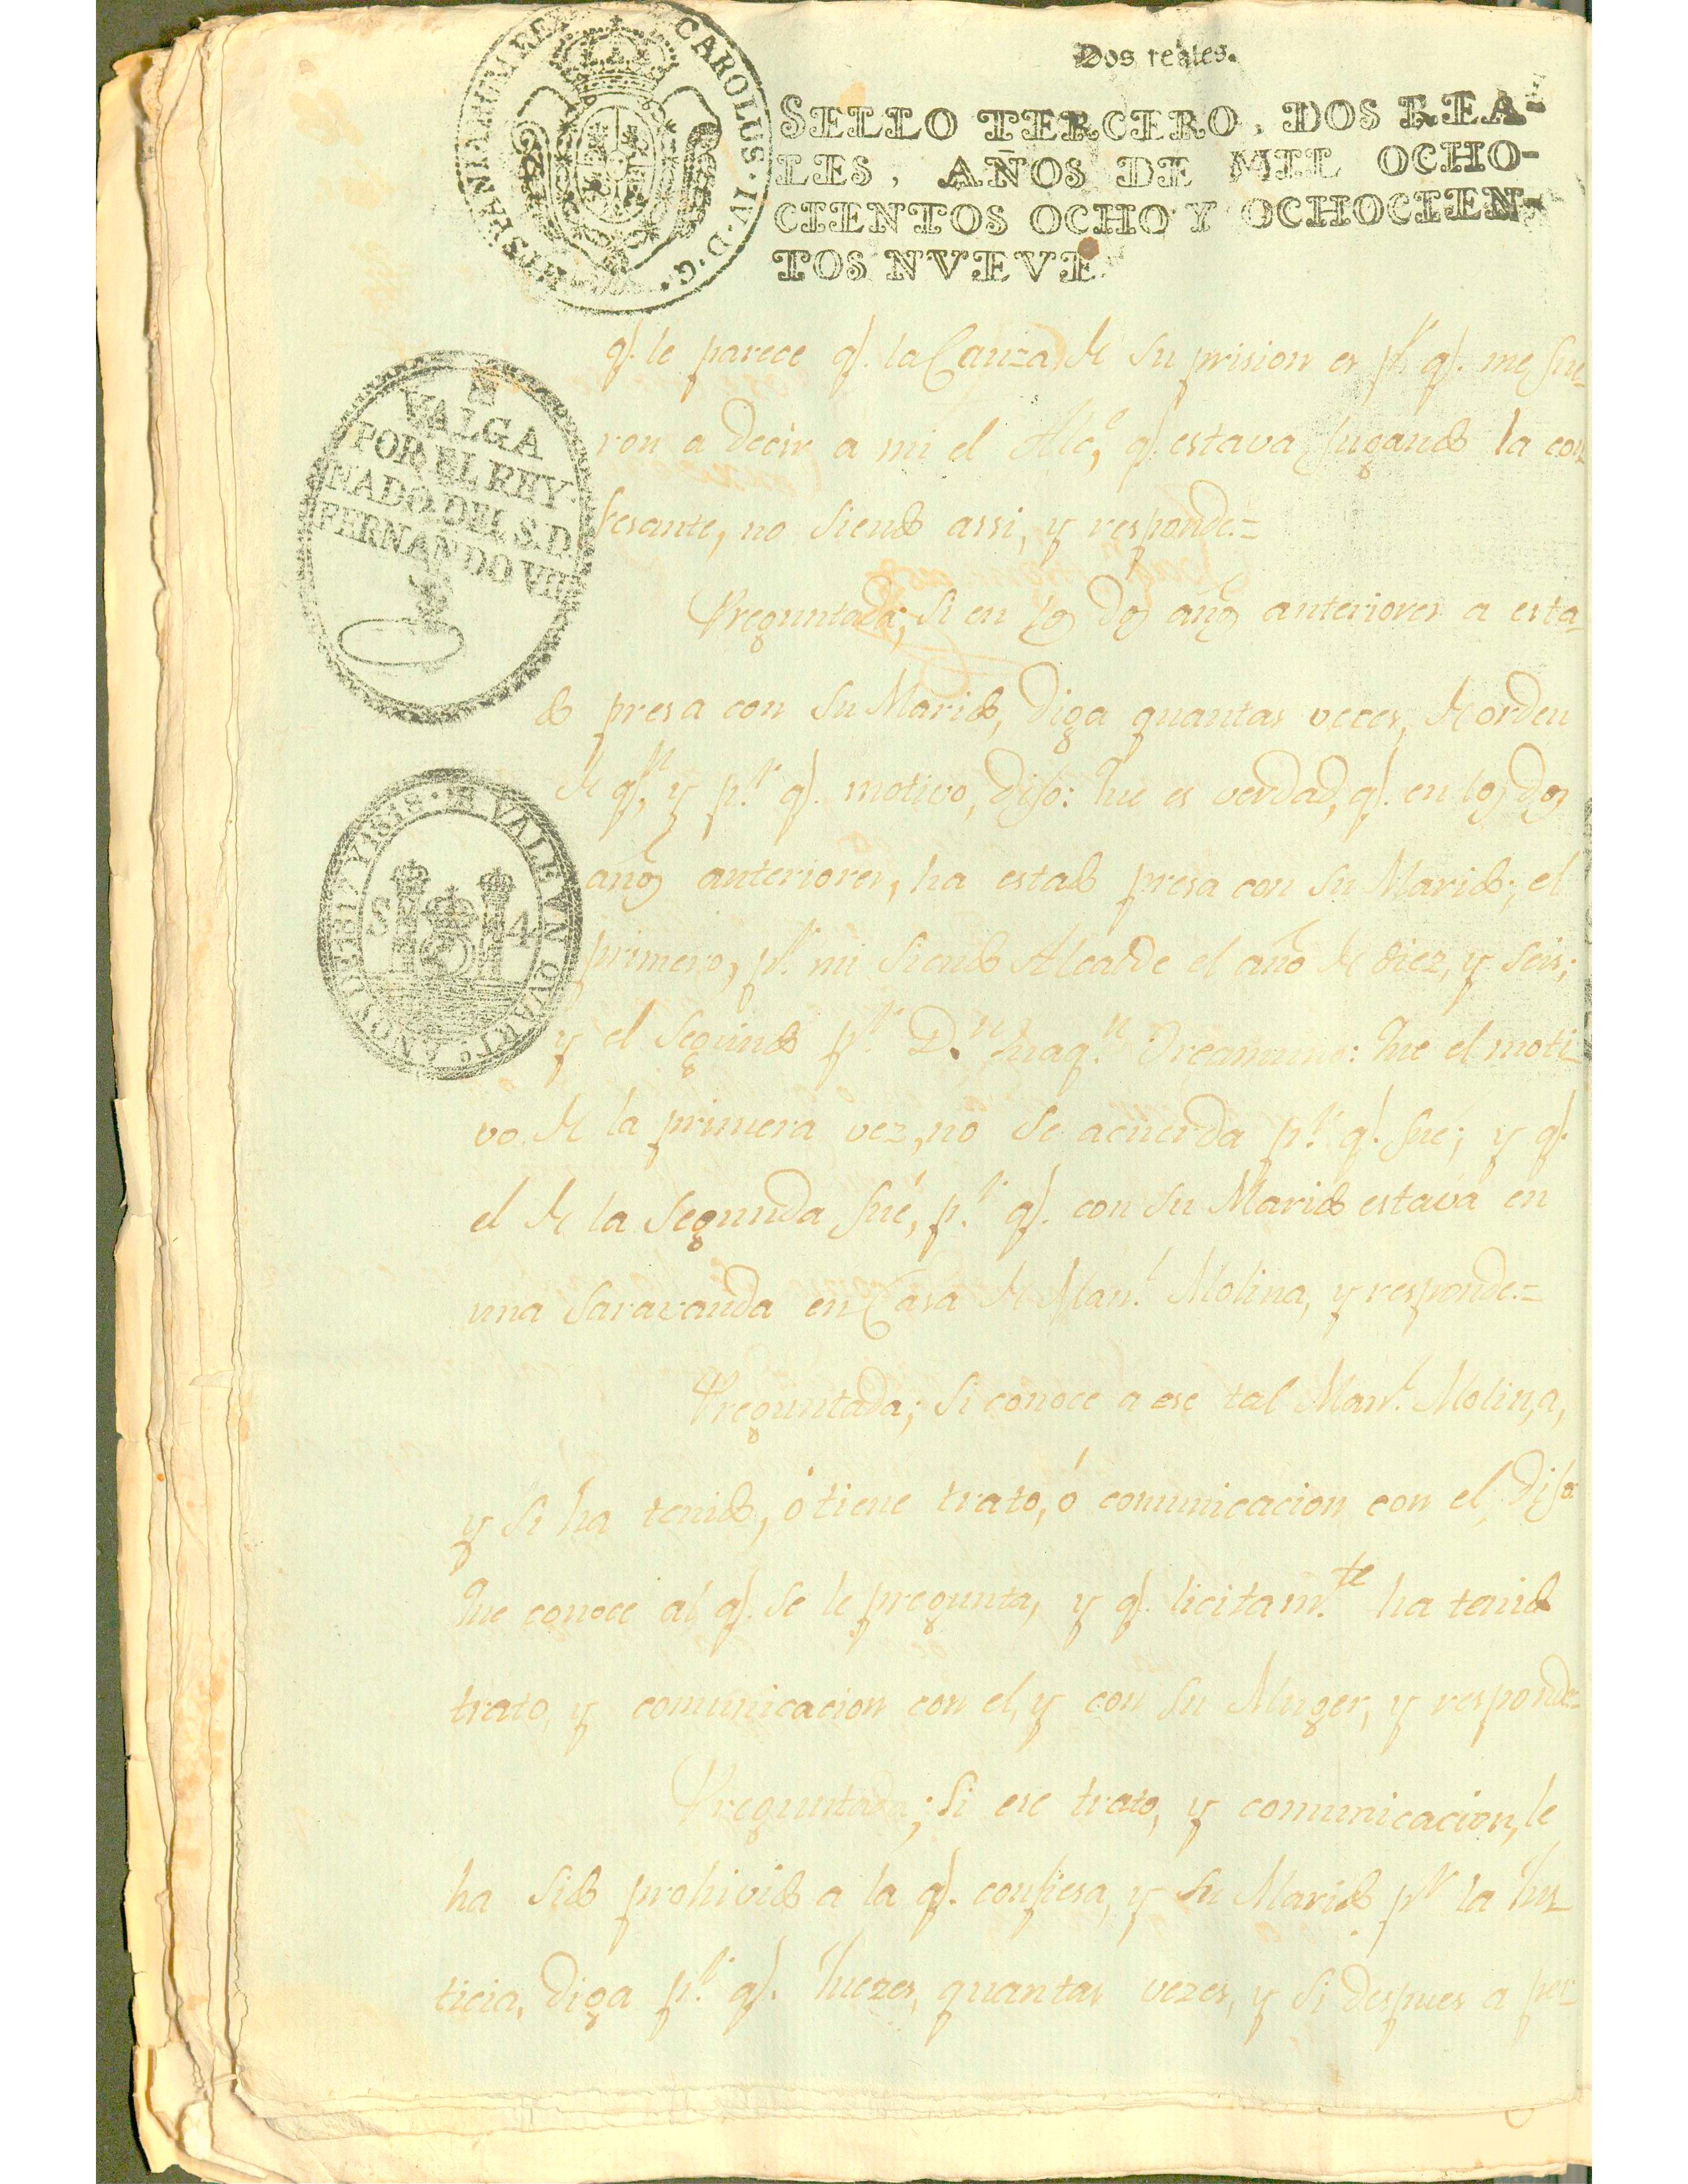 HISPANIARUM REX CAROLUS · IV · D · G ·
Dos reales.
SELLO TERCERO, DOS REA-
LES, AÑOS DE MIL OCHO-
CIENTOS OCHO Y OCHOCIEN-
TOS NVEVE.
VALGA
POR EL REY
NADO DEL S.D.
FERNANDO VII
VALE VN QVART
S 4
q.e le parece q.e la Cauza de su prision es p.r q.e me fue-
ron a decir a mi el q.e estava jugando la con-
fesante, no siendo assi, y responde.=
Preguntada; si en los dos años anteriores a esta-
do presa con su Marido, diga quantas veces, de orden
de q.n y p.r q.e motivo, dijo: Que es verdad, q.e en los dos
años anteriores, ha estado presa con su Marido; el
primero, p.r mi siendo Alcalde el año de diez, y seis;
y el segundo p.r D.n Juaq.n Oreamuno: Que el moti-
vo de la primera vez, no se acuerda p.r q.e fue; y q.e
el de la segunda fué, p.r q.e con su Marido estava en
una saravanda en Casa de Man.l Molina, y responde.=
Preguntada; si conoce a ese tal Man.l Molina,
y si ha tenido, ó tiene trato, ó comunicacion con el, dijo
Que conoce al q.e se le pregunta, y q.e licitam.te ha tenido
trato, y comunicacion con el, y con su Muger, y responde=
Preguntada; si ese trato, y comunicacion, le
ha sido prohivido a la q.e confiesa, y su Marido p.r la Jus-
ticia, diga p.r q.e Juezes, quantas vezes, y si despues a per-